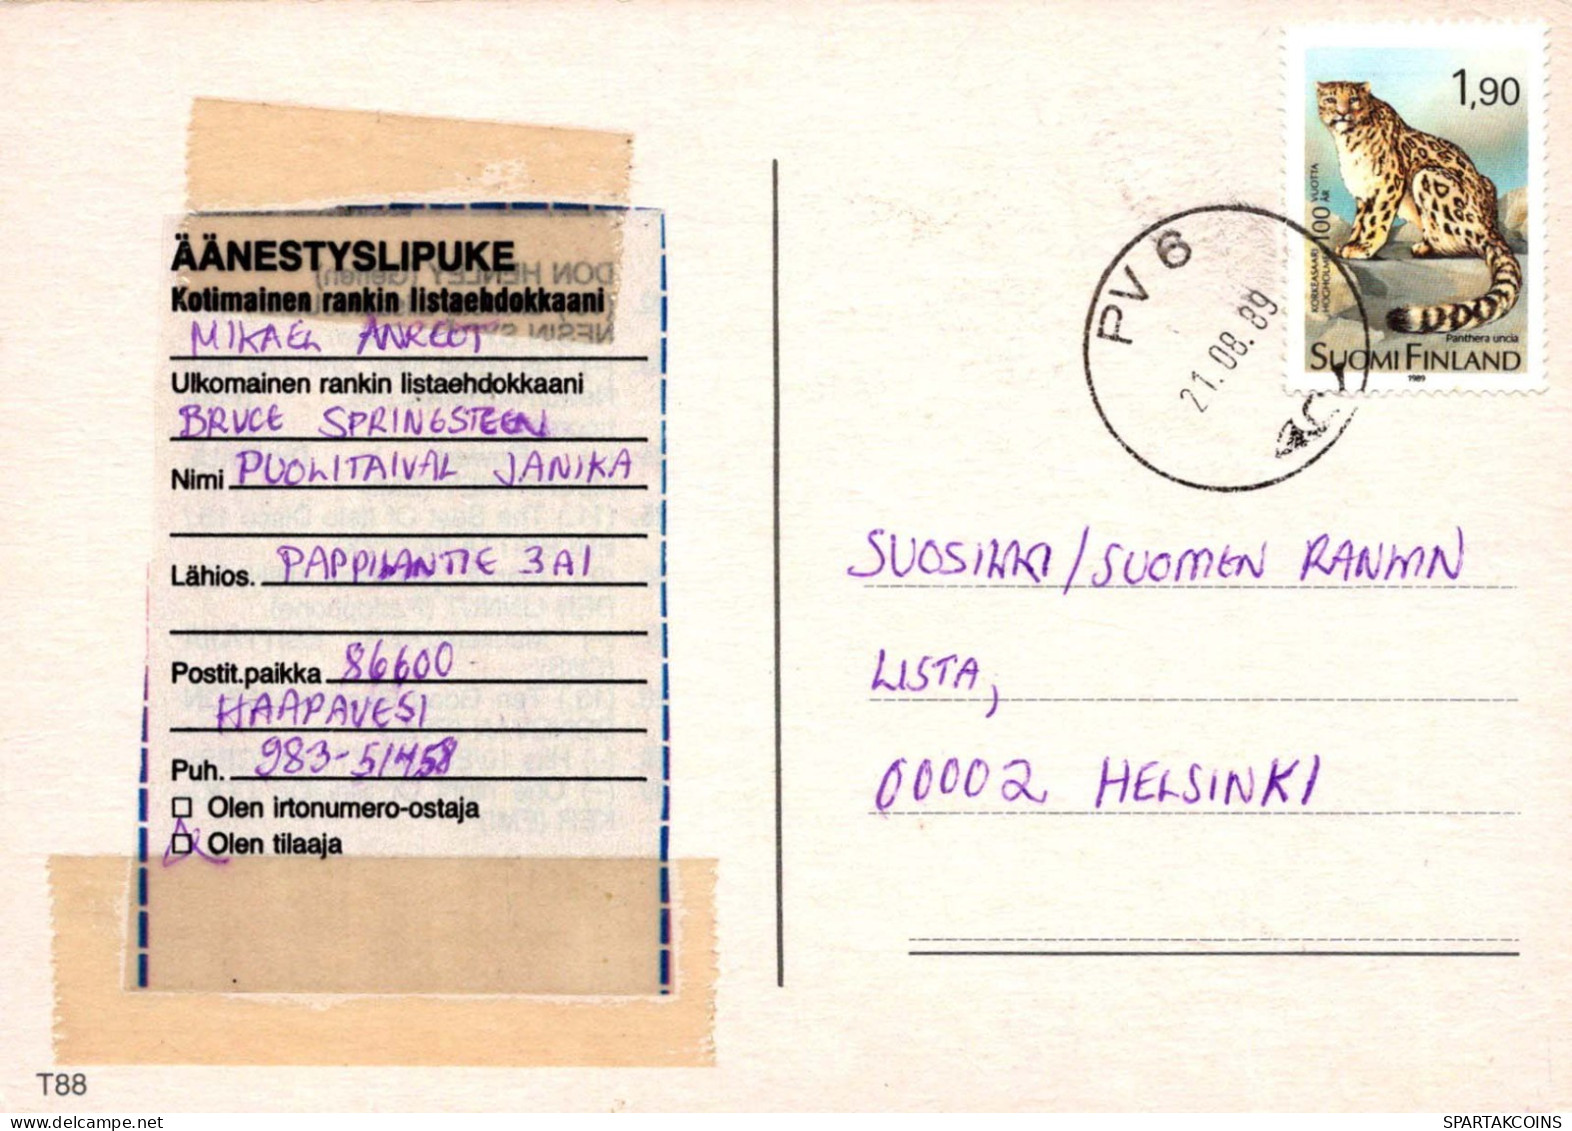 ÄÄNESTYSLIPUKE
Kotimainen rankin listaehdokkaani
MIKAEL
Ulkomainen rankin listaehdokkaani
BRUCE SPRINGSTEEN
Nimi PUOLITAIVAL JANIKA
Lähios. PAPPILANTIE 3 A 1
Postit.paikka 86600
HAAPAVESI
Puh. 983-51458
Olen irtonumero-ostaja
Olen tilaaja
T88
1,90
KORKEASAARI 100 VUOTTA
HÖGHOLMEN 100 ÅR
Panthera uncia
SUOMI FINLAND
1989
PV 6
21.08.89
SUOSIKKI/SUOMEN RANKIN
LISTA,
00002 HELSINKI
SPARTAKCOINS